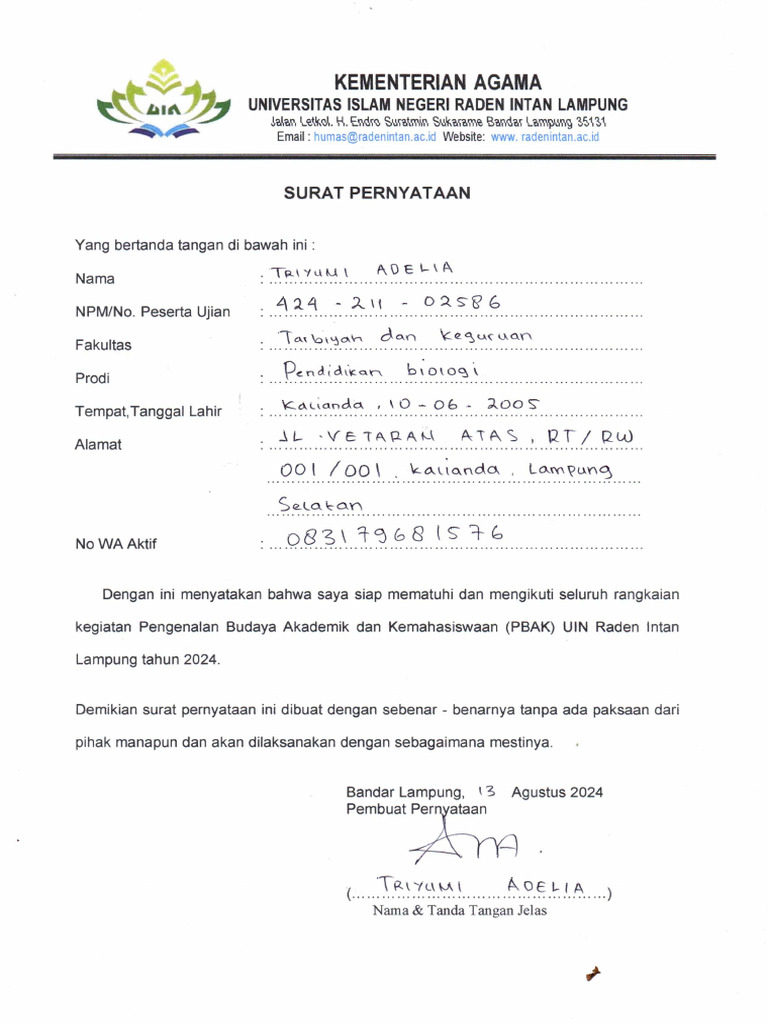 UIN
KEMENTERIAN AGAMA
UNIVERSITAS ISLAM NEGERI RADEN INTAN LAMPUNG
Jalan Letkol. H. Endro Suratmin Sukarame Bandar Lampung 35131
Email : humas@radenintan.ac.id Website: www. radenintan.ac.id
SURAT PERNYATAAN
Yang bertanda tangan di bawah ini :
Nama : TRIYUMI ADELIA
NPM/No. Peserta Ujian : 424 - 211 - 02586
Fakultas : Tarbiyah dan Keguruan
Prodi : Pendidikan biologi
Tempat,Tanggal Lahir : Kalianda , 10 - 06 - 2005
Alamat : JL .VETARAN ATAS , RT / RW
001 / 001 , Kalianda , Lampung
Selatan
No WA Aktif : 083179681576
Dengan ini menyatakan bahwa saya siap mematuhi dan mengikuti seluruh rangkaian
kegiatan Pengenalan Budaya Akademik dan Kemahasiswaan (PBAK) UIN Raden Intan
Lampung tahun 2024.
Demikian surat pernyataan ini dibuat dengan sebenar - benarnya tanpa ada paksaan dari
pihak manapun dan akan dilaksanakan dengan sebagaimana mestinya.
Bandar Lampung, 13 Agustus 2024
Pembuat Pernyataan
(TRIYUMI ADELIA)
Nama & Tanda Tangan Jelas